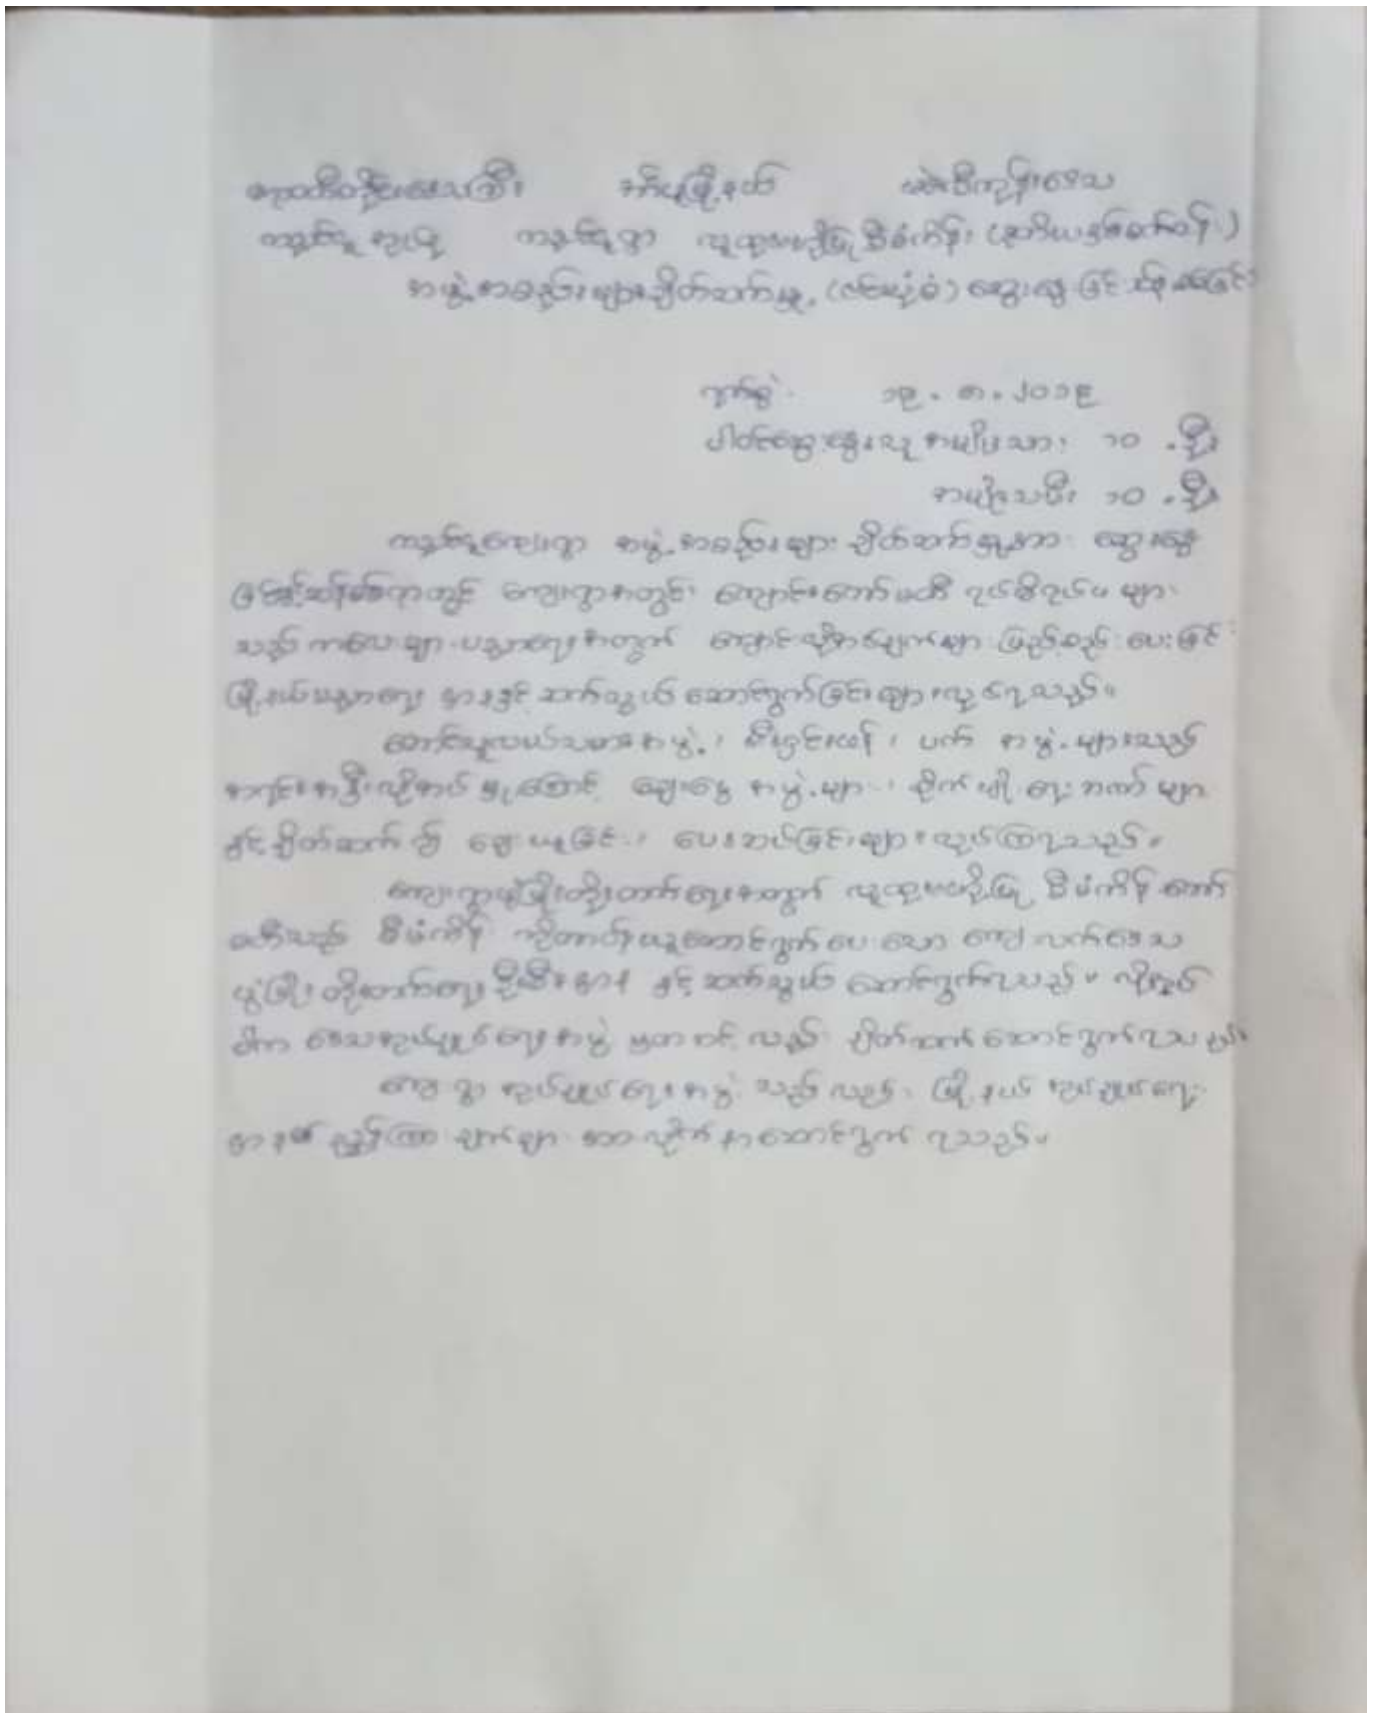 ဧရာဝတီတိုင်းဒေသကြီး အင်္ဂပူမြို့နယ် ဒေသ
အုပ်စု ရွာ လူထုဗဟိုပြုစီမံကိန်း (ဒုတိယနှစ်စက်ဝန်း)
အဖွဲ့အစည်းများချိတ်ဆက်မှု (ဇင်ယုံပုံ) ဆွေးနွေးခြင်း
ရက်စွဲ ၁၉.၈.၂၀၁၉
ပါဝင်ဆွေးနွေးသူ အမျိုးသား ၁၀ .ဦး
အမျိုးသမီး ၁၀ .ဦး
ကျေးရွာ အဖွဲ့အစည်းများ ချိတ်ဆက်မှုအား ဆွေးနွေး
ရာတွင် ကျေးရွာအတွင်း ကျောင်းကော်မတီ ရပ်မိရပ်ဖများ
သည် ကလေးများ ပညာရေးအတွက် ကျောင်းလိုအပ်ချက်များ ဖြည့်ဆည်းပေးခြင်း
မြို့နယ်ပညာရေး ဌာနနှင့် ဆက်သွယ် ဆောင်ရွက်ခြင်းများ လုပ်ရသည်။
တောင်သူလယ်သမားအဖွဲ့၊ မီးရှင်းဖန်၊ ပက် အဖွဲ့များသည်
အရင်းအနှီးလိုအပ်မှုကြောင့် ချေးငွေ အဖွဲ့များ၊ စိုက်ပျိုးရေးဘဏ်များ
နှင့် ချိတ်ဆက်၍ ချေးယူခြင်း၊ ပေးဆပ်ခြင်းများ လုပ်ကြရသည်။
ကျေးရွာဖွံ့ဖြိုးတိုးတက်ရေးအတွက် လူထုဗဟိုပြု စီမံကိန်းကော်
မတီသည် စီမံကိန်း ကိုတာဝန်ယူဆောင်ရွက်ပေးသော ကျေးလက်ဒေသ
ဖွံ့ဖြိုးတိုးတက်ရေး ဦးစီးဌာန နှင့် ဆက်သွယ် ဆောင်ရွက်ရသည်။ လိုအပ်
ပါက ဒေသအုပ်ချုပ်ရေးအဖွဲ့ လည်း ချိတ်ဆက် ဆောင်ရွက်ရသည်။
ကျေးရွာ အုပ်ချုပ်ရေးအဖွဲ့ သည်လည်း မြို့နယ် အုပ်ချုပ်ရေး
ဌာန၏ ညွှန်ကြားချက်များ အားလိုက်နာဆောင်ရွက် ရသည်။